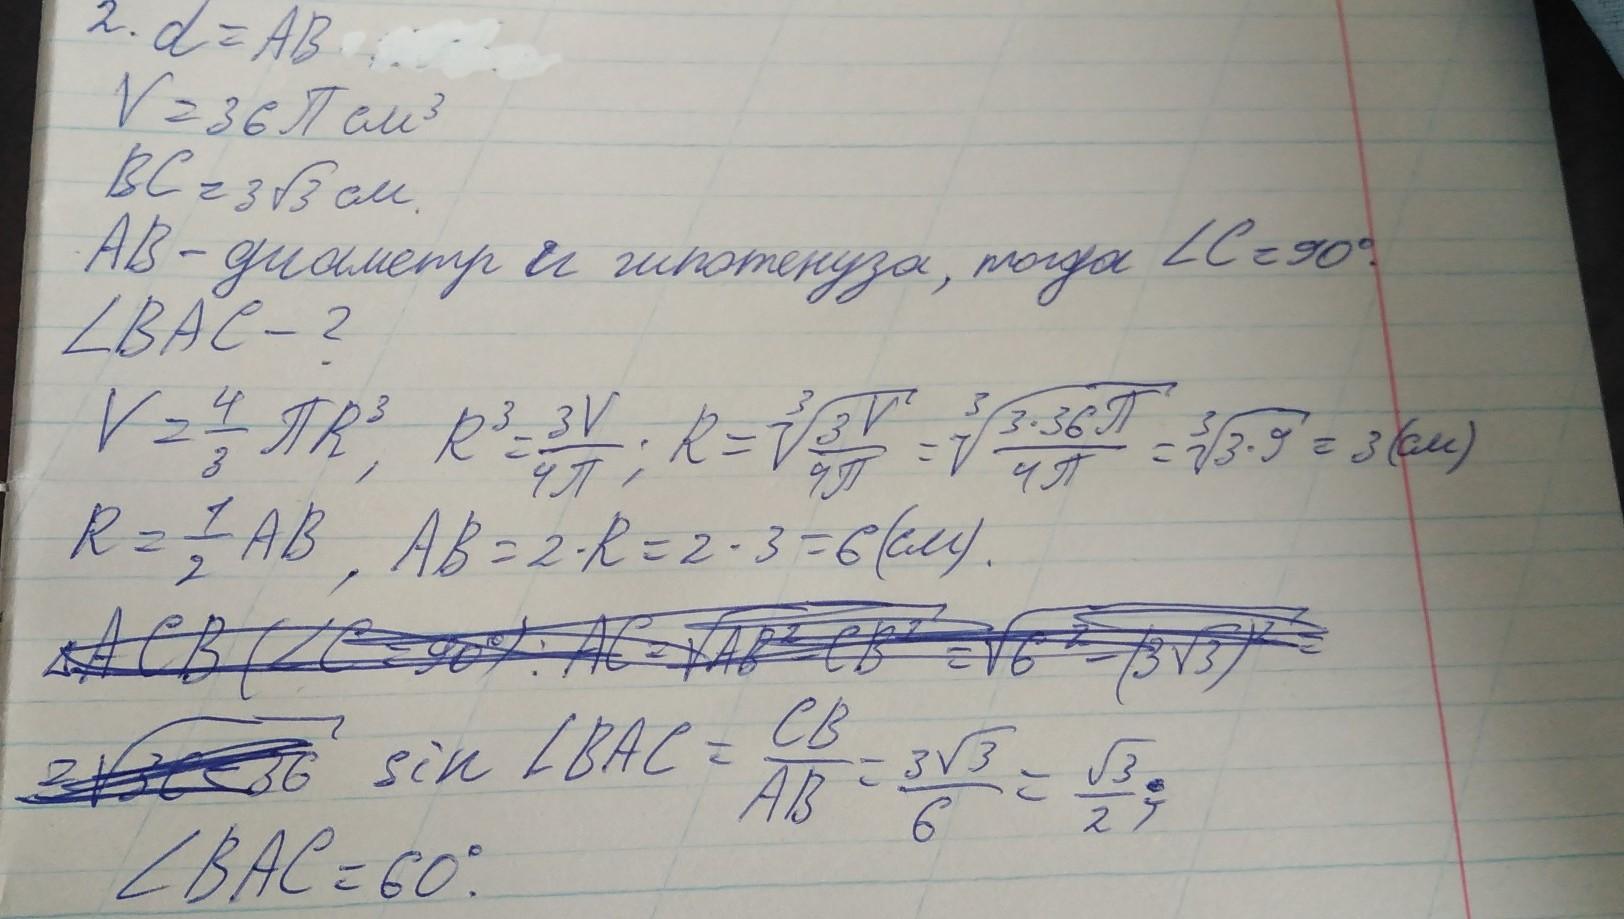 2. d = AB.
V = 36 П см³
BC = 3√3 см.
AB - диаметр и гипотенуза, тогда ∠C = 90°.
∠BAC - ?
V = 4/3 ПR³, R³ = 3V/4П; R = ∛(3V/4П) = ∛(3·36П/4П) = ∛(3·9) = 3 (см)
R = 1/2 AB, AB = 2·R = 2·3 = 6 (см).
△ACB (∠C = 90°): AC = √(AB² - CB²) = √(6² - (3√3)²) =
= √(36 - 36) sin ∠BAC = CB/AB = 3√3/6 = √3/2;
∠BAC = 60°.